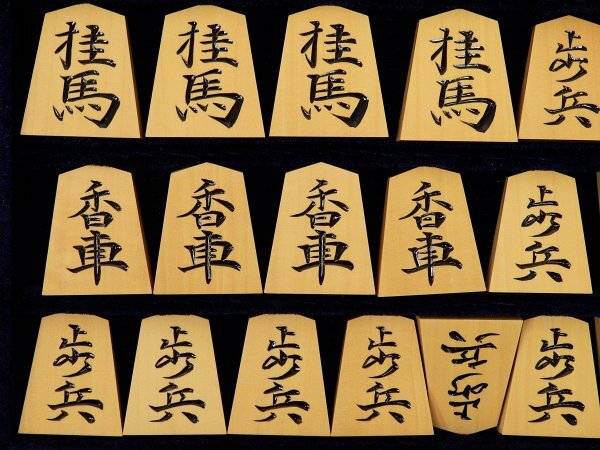 桂馬 桂馬 桂馬 桂馬 歩兵
香車 香車 香車 香車 歩兵
歩兵 歩兵 歩兵 歩兵 歩兵 歩兵